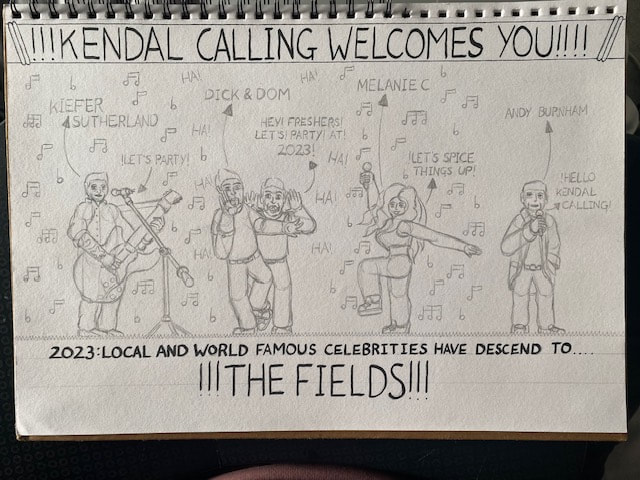 !!!KENDAL CALLING WELCOMES YOU!!!!
HA!
HA!
MELANIE C
DICK & DOM
KIEFER
SUTHERLAND
ANDY BURNHAM
HEY! FRESHERS!
LET'S PARTY! AT!
2023!
HA!
!LET'S PARTY!
HA!
!LET'S SPICE
THINGS UP!
HA!
HA!
!HELLO
KENDAL
CALLING!
HA!
2023: LOCAL AND WORLD FAMOUS CELEBRITIES HAVE DESCEND TO....
!!!THE FIELDS!!!